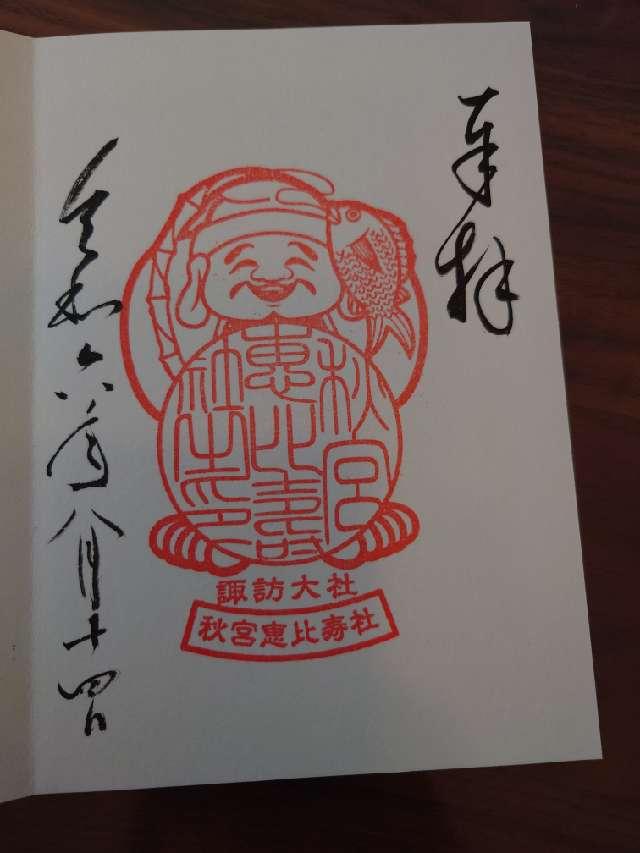 奉拝
秋宮
恵比寿
社之印
諏訪大社
秋宮恵比寿社
令和六年八月十四日